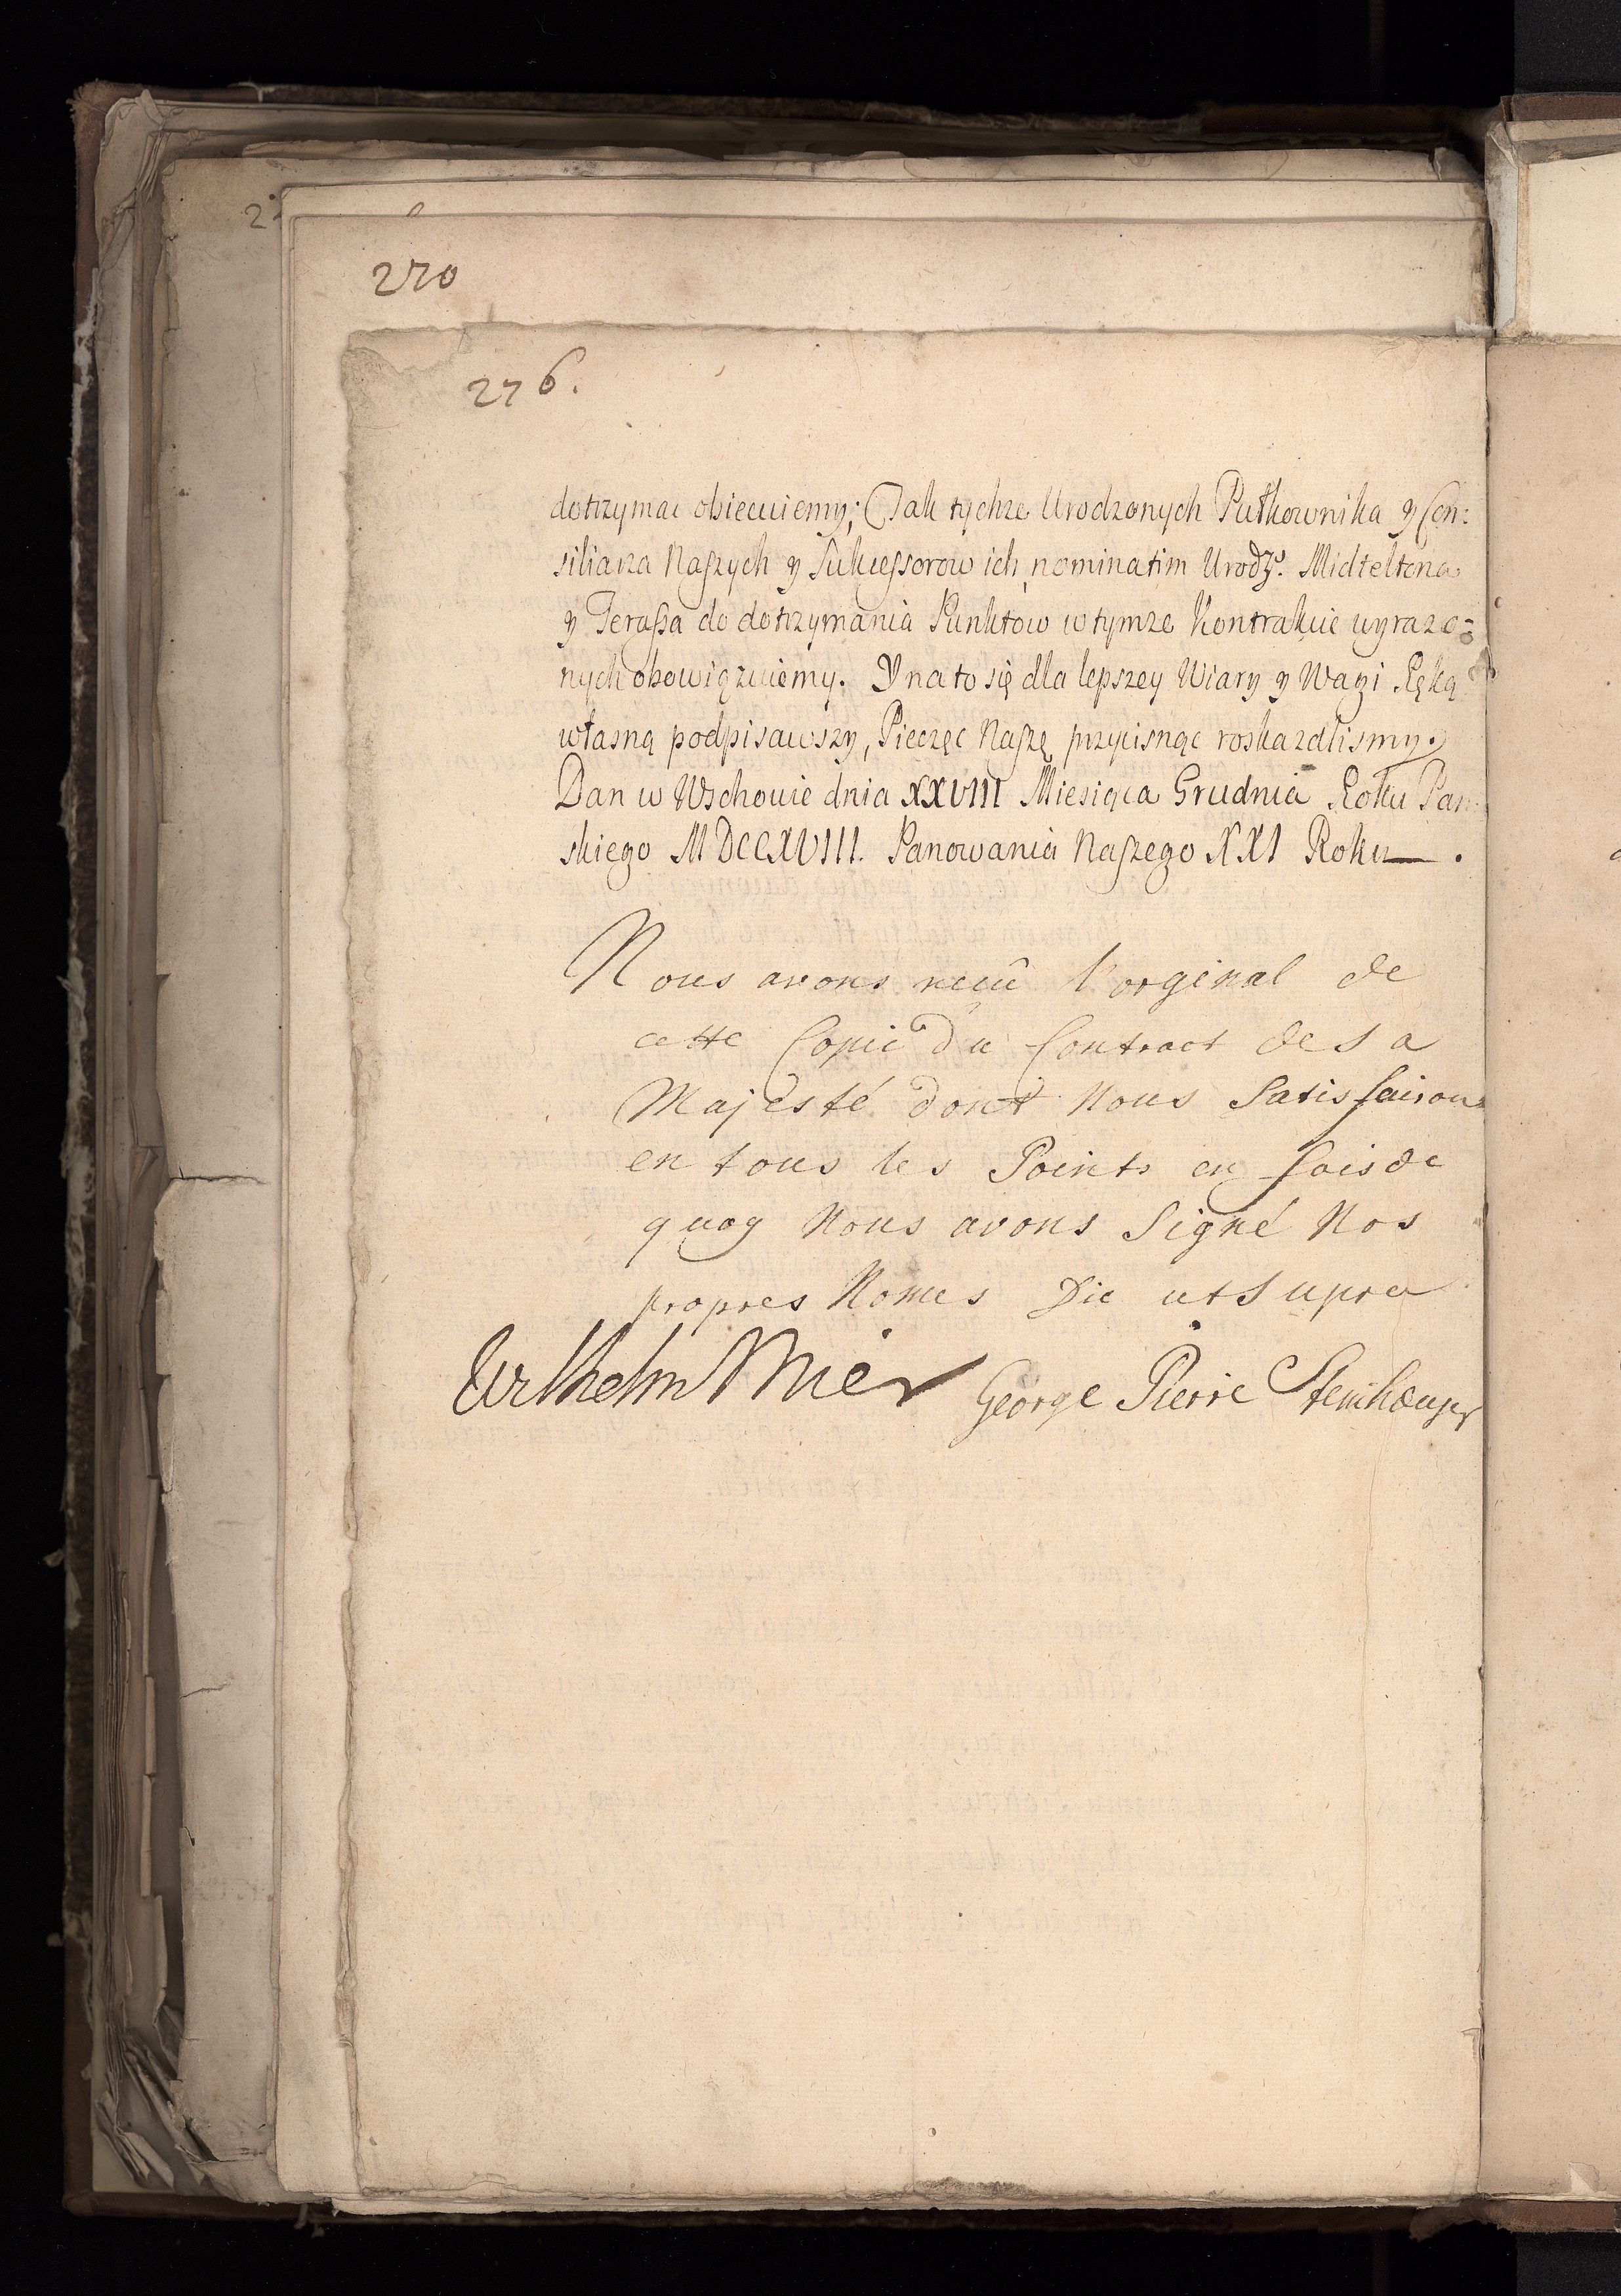 270
276.
dotrzymac obiecuiemy; Jak tychze Urodzonych Pułkownika y Con:
siliarza Naszych y Sukcessorow ich nominatim Urodz. Midteltona
y Terassa do dotrzymania Punktow w tymze Kontrakcie wyrazo=
nych obowiązuiemy. Y na to się dla lepszey Wiary y Wagi Ręką
własną podpisawszy, Pieczęc Naszę przycisnąc roskazalismy.
Dan w Wschowie dnia XXVIII Miesiąca Grudnia Roku Pan
skiego MDCCXVIII. Panowania Naszego XXI Roku.
Nous avons reçû l'orginal de
cette Copie du Contract de Sa
Majesté dont Nous Satisfairons
en tous les Points en fois de
quoy Nous avons Signé Nos
propres Nomes Die ut Supra
Wilhelm Mier George Pierre Steinheuser